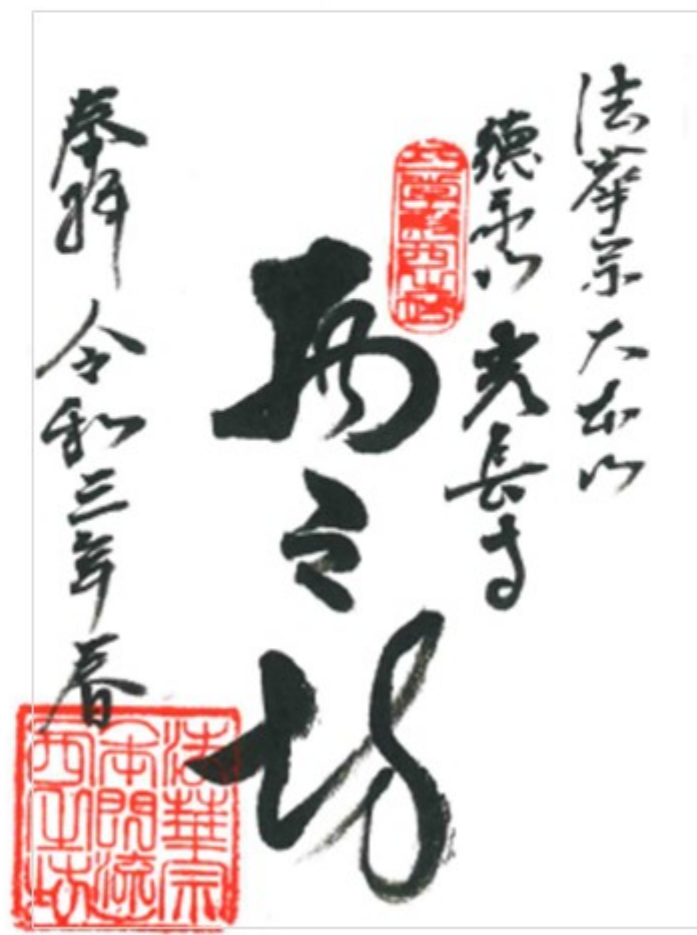 法華宗 大本山
德永山 光長寺
西之坊
奉拝 令和三年春
法華宗
本門流
西之坊